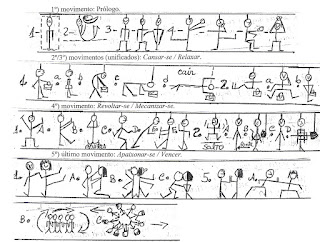 1º) movimento: Prólogo.
1- 2- 3- 4-
2º/3º) movimentos (unificados): Cansar-se / Relaxar.
1. a. b. c. d. cair 2. a.
4º) movimento: Revoltar-se / Mecanizar-se.
1. A B C D 2. SALTO A B C D
5º) último movimento: Apaixonar-se / Vencer.
1. A. B. C. 5. A.
B. C.